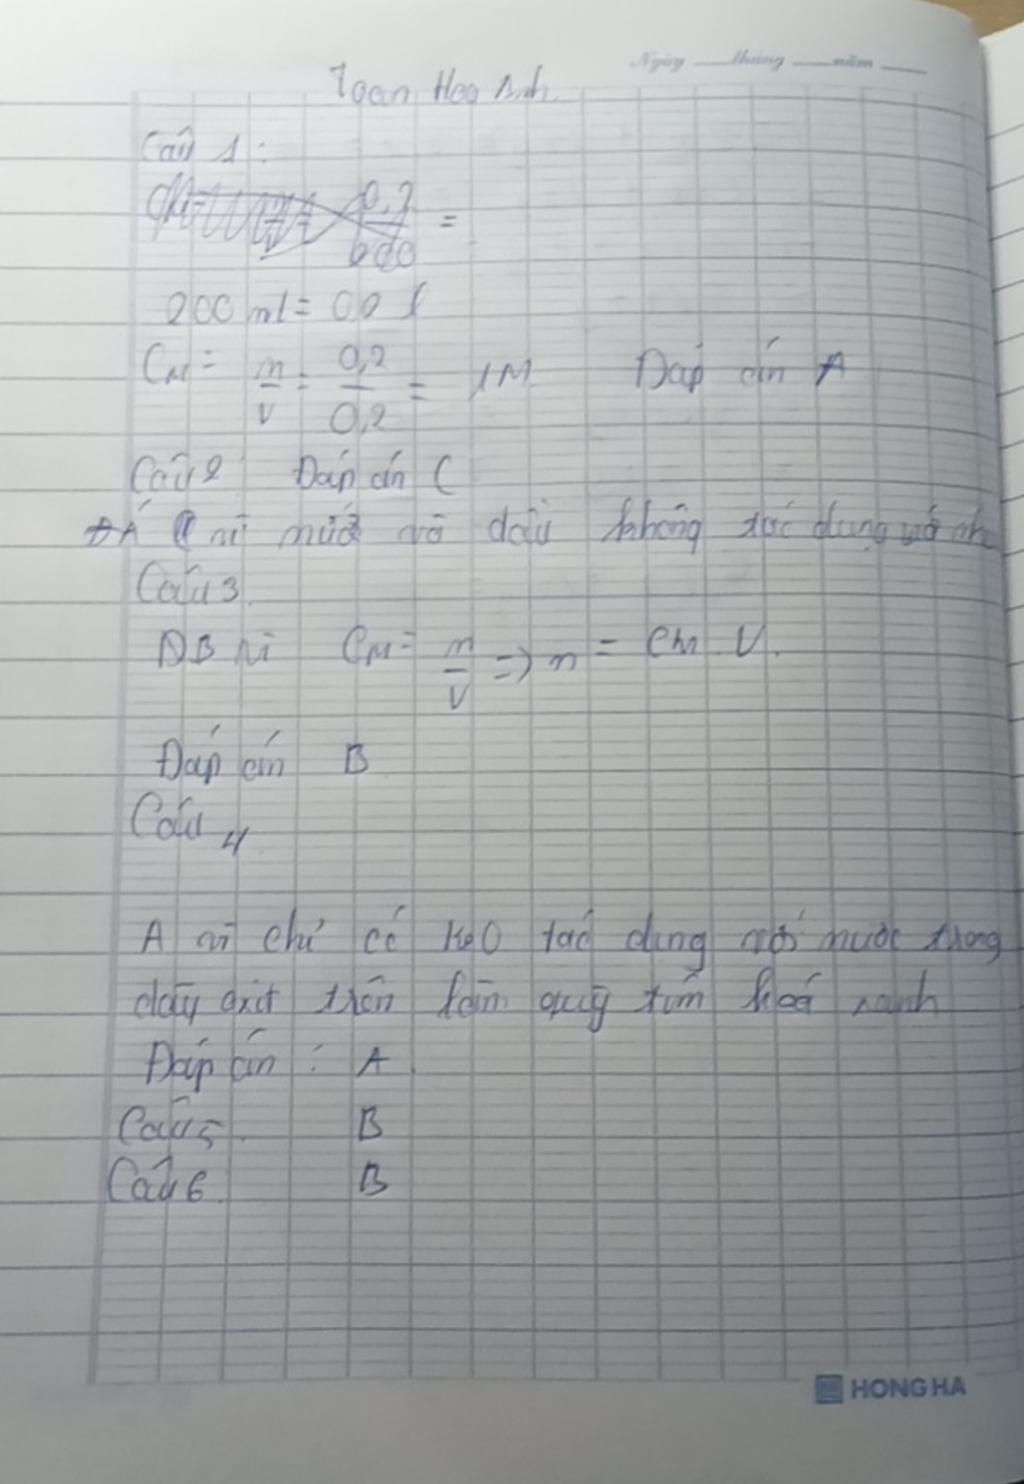 Ngày tháng năm
Toan Hoa Anh
Câu 1:
0,2
=
200 ml = 0,2 l
CM = n/V = 0,2/0,2 = 1M Đáp án A
Câu 2 Đáp án C
ĐÁ C vì nước và dầu không tác dụng với nh
Câu 3
ĐB vì CM = n/V => n = CM. V.
Đáp án B
Câu 4
A vì chỉ có K2O tác dụng với nước trong
dãy oxit trên làm quỳ tím hoá xanh
Đáp án : A
Câu 5. B
Câu 6. B
HONG HA